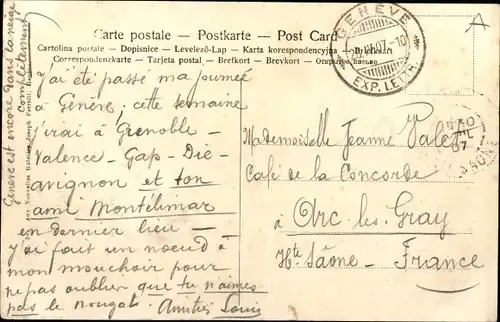 Carte postale - Postkarte - Post Card
Cartolina postale - Dopisnice - Levelező-Lap - Karta korespondencyjna - Briefkaart
Correspondenzkarte - Tarjeta postal - Brefkort - Brevkort - Открытое письмо
GENÈVE
EXP. LETTR.
Genève est encore dans la neige
Complètement
J'ai été passé ma journée
à Genève; cette semaine
j'irai à Grenoble -
Valence - Gap - Die -
avignon et ton
ami Montélimar
en dernier lieu -
j'ai fait un noeud à
mon mouchoir pour
ne pas oublier que tu n'aimes
pas le nougat. Amitiés Louis
Mademoiselle Jeanne
Café de la Concorde
à Arc-les-Gray
Hte Saône - France